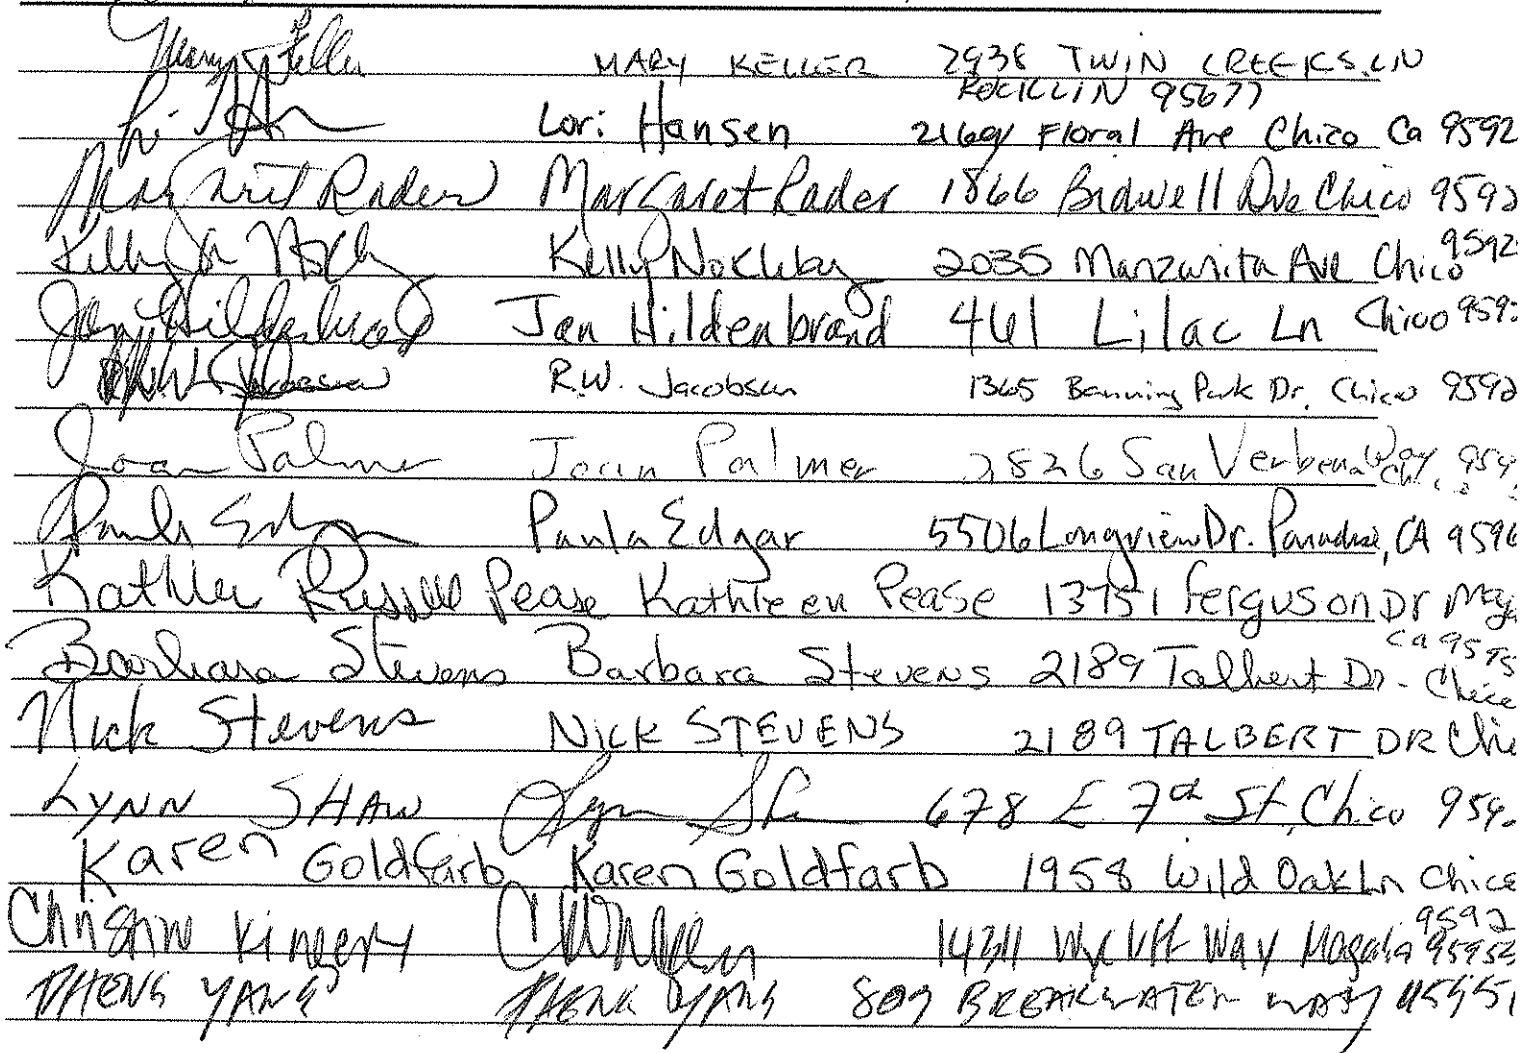 Mary Keller MARY KELLER 2938 TWIN CREEKS LN
ROCKLIN 95677
Lori Hansen 2169 Floral Ave Chico Ca 9592
Margaret Rader Margaret Rader 1866 Bidwell Ave Chico 9592
Kelly Nockleby 2035 Manzanita Ave Chico 9592
Jan Hildenbrand Jan Hildenbrand 461 Lilac Ln Chico 959
R.W. Jacobsen 1365 Banning Park Dr. Chico 9592
Joan Palmer Joan Palmer 2826 San Verbena Way Chico 959
Paula Edgar Paula Edgar 5506 Longview Dr. Paradise, CA 9596
Russell Pease Kathleen Pease 13751 Ferguson Dr Maga
Ca 9595
Barbara Stevens Barbara Stevens 2189 Talbert Dr - Chico
Nick Stevens NICK STEVENS 2189 TALBERT DR Chi
LYNN SHAW Lynn 678 E 7th St, Chico 959
Karen Goldfarb Karen Goldfarb 1958 Wild Oak Ln Chico
9592
Christine Kingery Way Magalia 95954
PHENG YANG PHENG YANG 809 BREAKWATER WAY